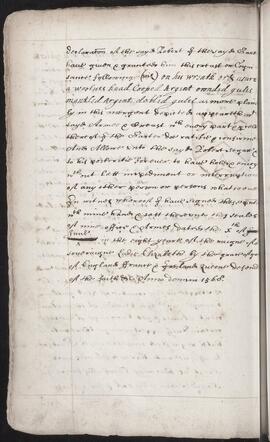 declaration of the sayd Robert of the sayd
haue given & granted him this crest or Cogni
sance following (viz) on his wreath or & azure
a wolues head Couped Argent
mantled Argent, dobled gules, as more plain
ly in this margent depicted appeareth
sayd Armes & Creast
thereof
And Allowe vnto the sayd Robert
to his posteritie foreuer to haue hold &
wth out lett impediment or interruption
of any other person or persons whatsoeuer
In witnes whereof I haue signed these
wth mine hand & sett therevnto the seales
of mine office & Armes dated the Xth of
June
in the eight yeare of the raigne of
soueraigne Ladie Elizabeth by the grace of god
of England France & Ireland Queene defend
of the faith &c Anno domini 1566.